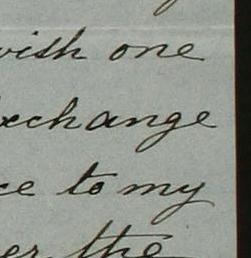 wish one
exchange
ce to my
er the